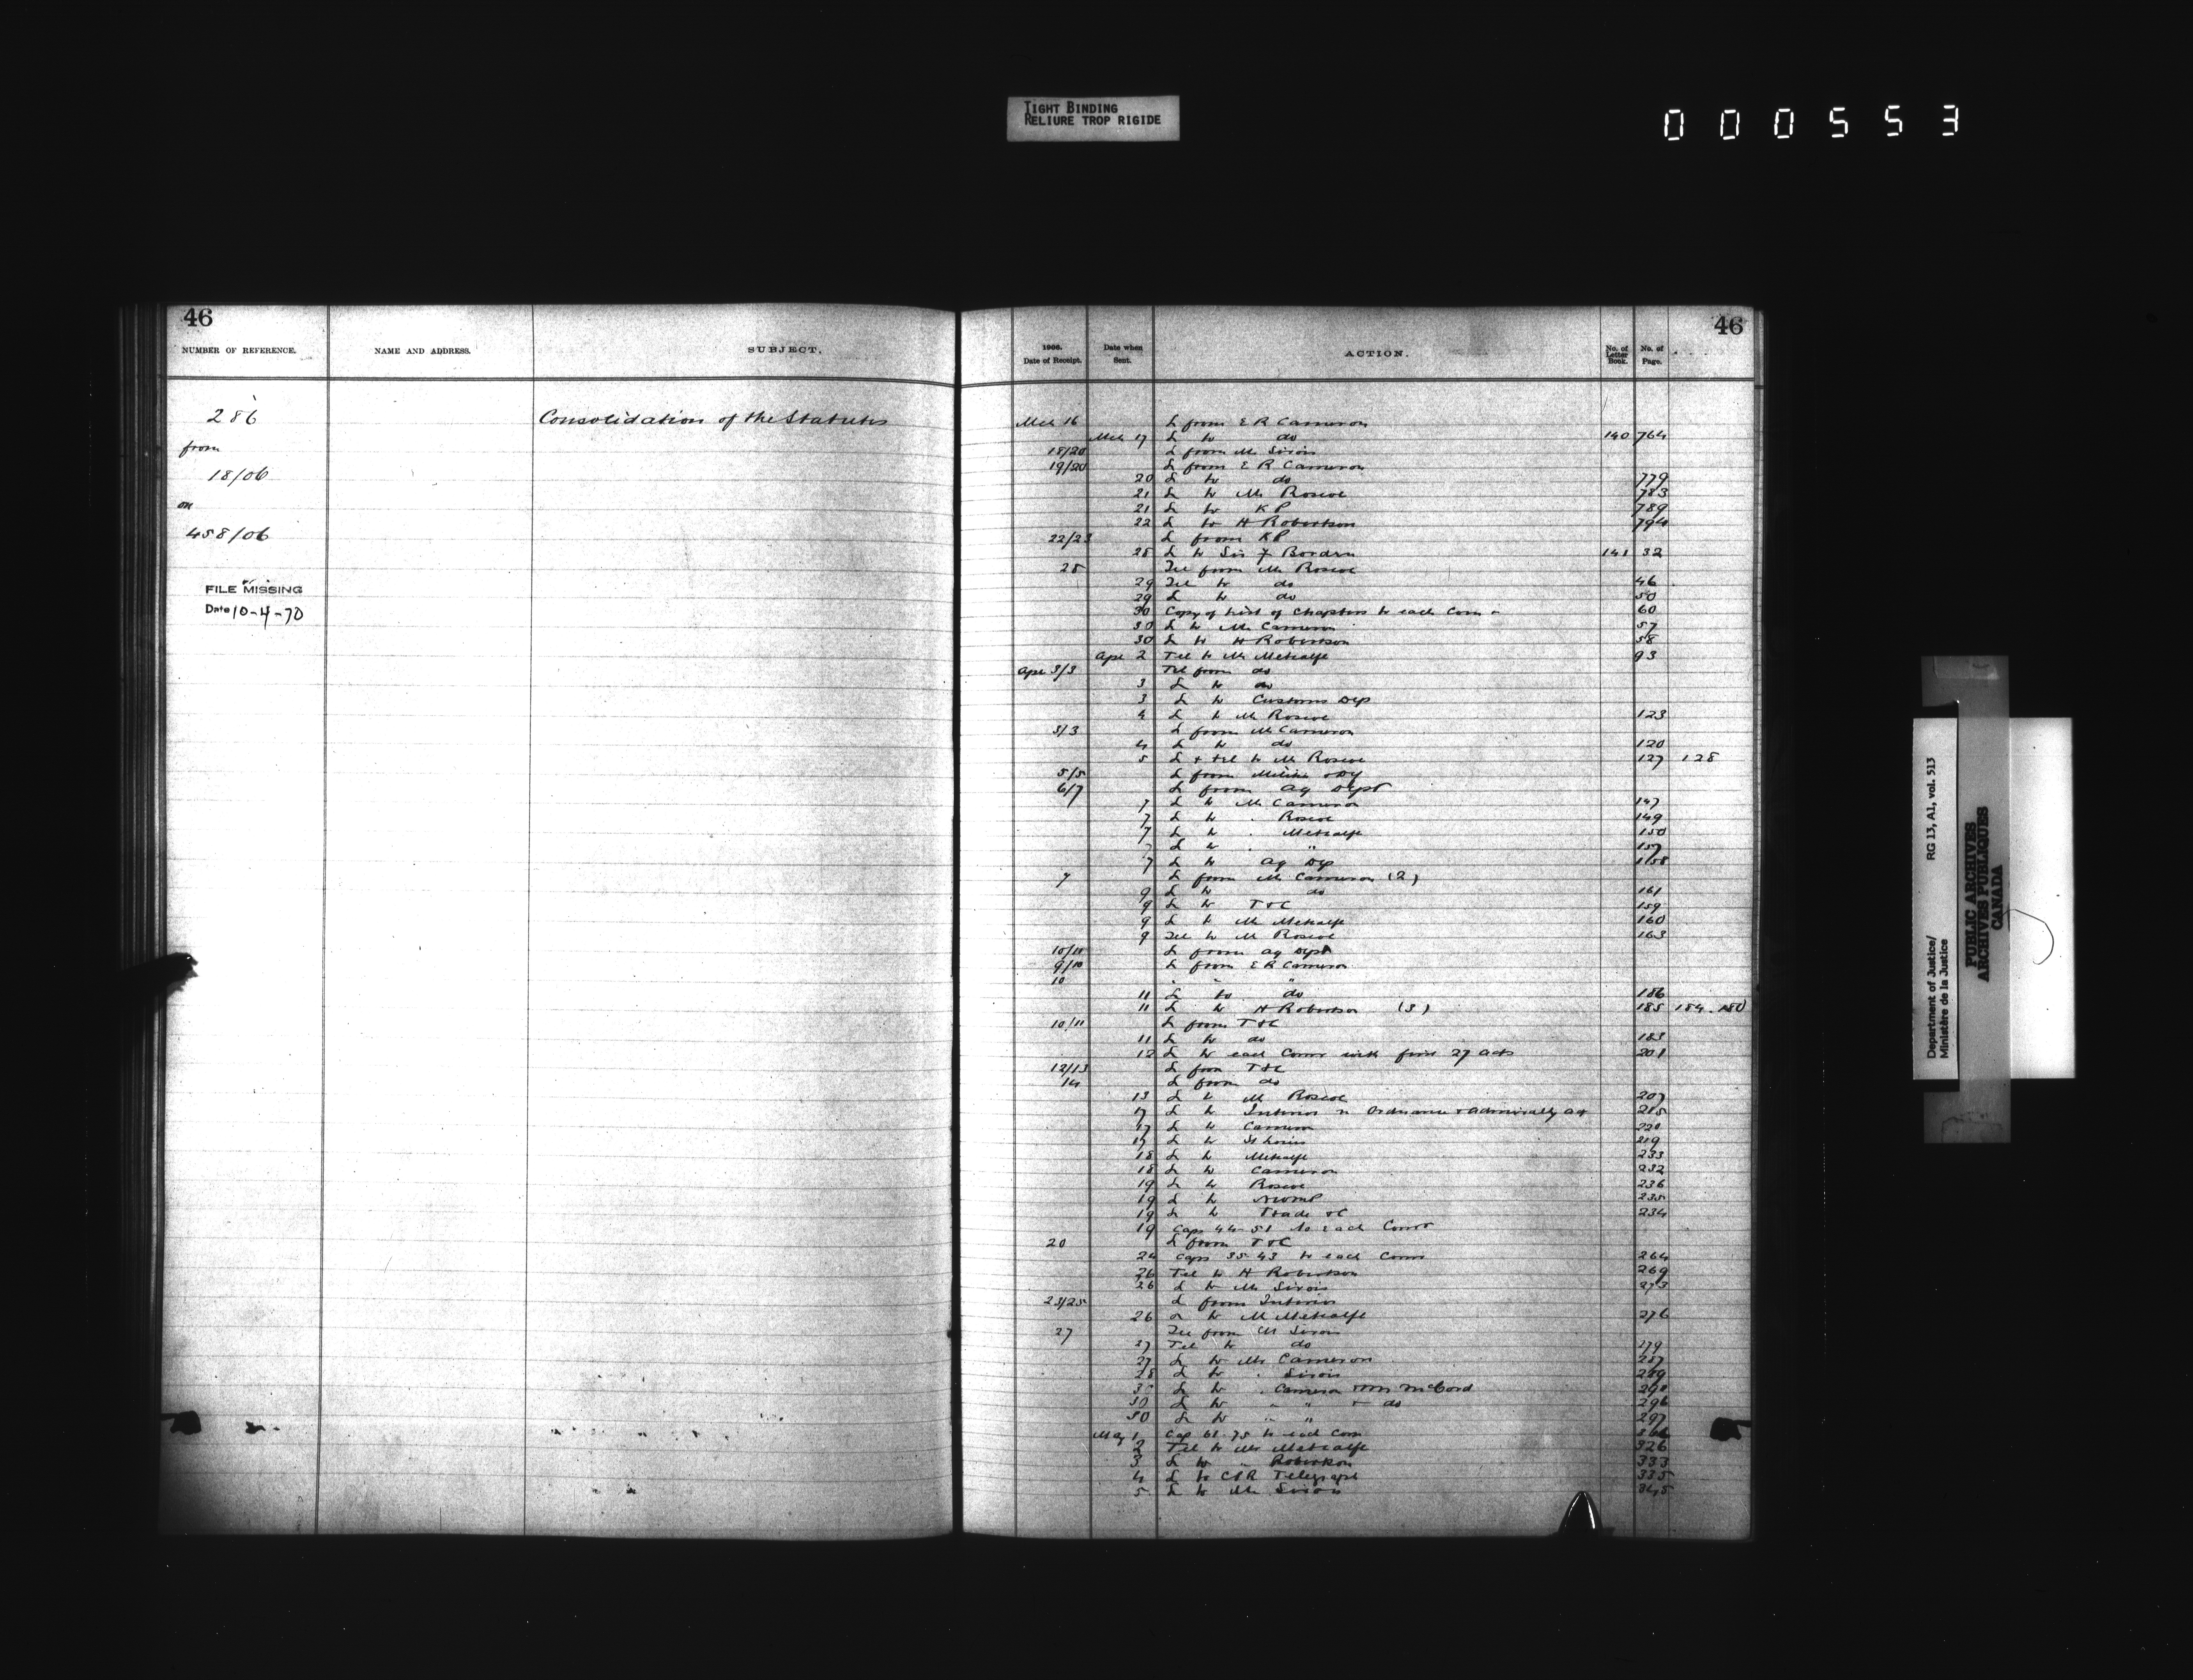 TIGHT BINDING
RELIURE TROP RIGIDE
000553
46
NUMBER OF REFERENCE. NAME AND ADDRESS. SUBJECT.
286 Consolidation of the Statutes
from
18/06
on
458/06
FILE MISSING
Date 10-4-70
46
1906. Date of Receipt. Date when Sent. ACTION. No. of Letter Book. No. of Page.
Mch 16 L from E R Cameron
Mch 17 L to do 140 764
18/20 L from Mr Sirois
19/20 L from E R Cameron
20 L to do 779
21 L to Mr Roscoe 783
21 L to K P 789
22 L to H Robertson 794
22/23 L from KP
28 L to Sir F Borden 141 32
28 Tel from Mr Roscoe
29 Tel to do 46
29 L to do 50
30 Copy of List of Chapters to each Com 60
30 L to Mr Cameron 57
30 L to H Robertson 58
Apr 2 Tel to Mr Metcalfe 93
Apr 3/3 Tel from do
3 L to do
3 L to Customs Dep
4 L to Mr Roscoe 123
3/3 L from Mr Cameron
4 L to do 120
5 L & tel to Mr Roscoe 127 128
5/5 L from Militia
6/7 L from Ag Dept
7 L to Mr Cameron 147
7 L to Roscoe 149
7 L to Metcalfe 150
L to " 157
7 L to Ag Dep 158
7 L from Mr Cameron (2)
9 L to do 161
9 L to T&C 159
9 L to Mr Metcalfe 160
9 Tel to Mr Roscoe 163
10/11 L from Ag Dept
9/10 L from E R Cameron
10 "
11 L to do 186
11 L to H Robertson (3) 185 184 180
10/11 L from T&C
11 L to do 183
12 L to each Comr with first 27 acts 201
12/13 L from T&C
14 L from do
13 L to Mr Roscoe 207
17 L to Interior re Ordnance & Admiralty Act 215
17 L to Cameron 220
17 L to St Louis 219
18 L to Metcalfe 233
18 L to Cameron 232
19 L to Roscoe 236
19 L to NWMP 235
19 L to Trade &C 234
19 Caps 44-51 to Each Comr
20 L from T&C
24 Caps 35-43 to each Comr 264
26 Tel to H Robertson 269
26 L to Mr Sirois 273
23/25 L from Interior
26 L to Mr Metcalfe 276
27 Tel from Mr Sirois
27 Tel to do 179
27 L to Mr Cameron 287
28 L to Sirois 289
30 L to Cameron & Mr McCord 290
30 L to " " & do 296
30 L to " " 297
May 1 Cap 61-75 to each Com
2 Tel to Mr Metcalfe 326
3 L to " Robertson 333
4 L to CPR Telegraph 335
5 L to Mr Sirois 345
Department of Justice/
Ministère de la Justice
RG 13, A1, vol. 513
PUBLIC ARCHIVES
ARCHIVES PUBLIQUES
CANADA